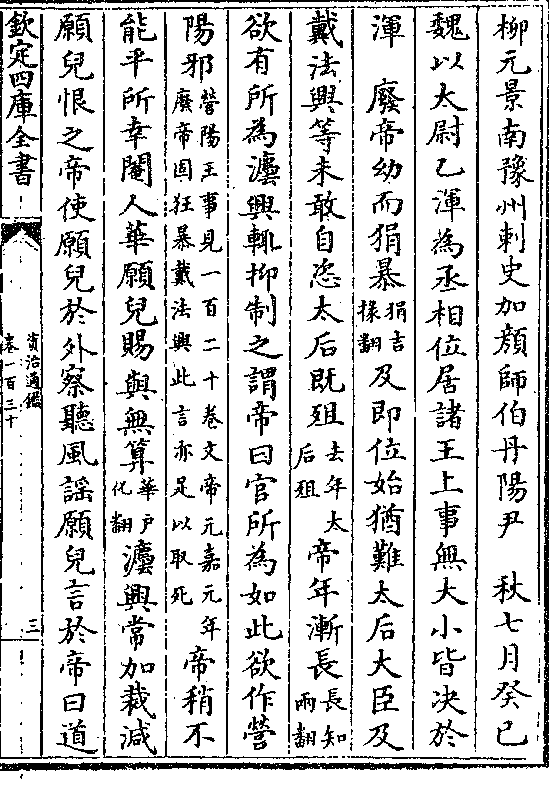 柳元景南豫州刺史加顔師伯丹陽尹　秋七月癸巳
魏以太尉乙渾為丞相位居諸王上事無大小皆决於
渾　廢帝幼而狷暴狷吉掾翻及即位始猶難太后大臣及
戴法興等未敢自恣太后既殂去年太后殂帝年漸長長知兩翻
欲有所為灋興輒抑制之謂帝曰官所為如此欲作營
陽邪營陽王事見一百二十卷文帝元嘉元年廢帝固狂暴戴法興此言亦足以取死帝稍不
能平所幸閹人華願兒賜與無算華户化翻灋興常加裁減
願兒恨之帝使願兒於外察聽風謡願兒言於帝曰道
欽定四庫全書
資治通鑑
卷一百三十
三